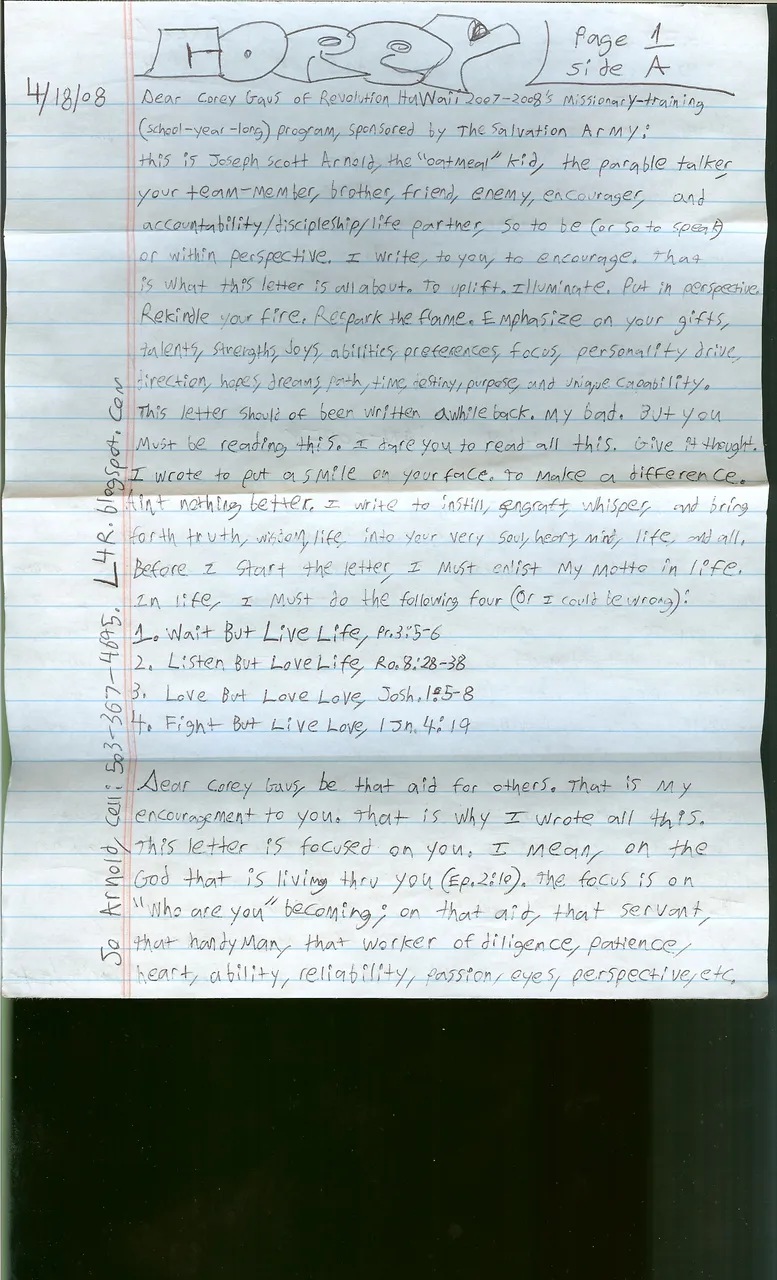 COREY
Page 1
side A
4/18/08
Dear Corey Gaus of Revolution HaWaii 2007-2008's Missionary-training
(school-year-long) program, sponsored by The Salvation Army:
this is Joseph Scott Arnold, the "oatmeal" kid, the parable talker,
your team-member, brother, friend, enemy, encourager, and
accountability/discipleship/life partner, so to be (or so to speak)
or within perspective. I write, to you, to encourage. That
is what this letter is all about. To uplift. Illuminate. Put in perspective.
Rekindle your fire. Respark the flame. Emphasize on your gifts,
talents, strengths, joys, abilities, preferences, focus, personality drive,
direction, hopes, dreams, path, time, destiny, purpose, and unique capability.
This letter should of been written awhile back. My bad. But you
Must be reading this. I dare you to read all this. Give it thought.
I wrote to put a smile on your face. To make a difference.
Aint nothing better. I write to instill, engraft, whisper, and bring
forth truth, wisdom, life, into your very soul, heart, mind, life, and all.
Before I start the letter, I Must enlist My Motto in life.
In life, I Must do the following four (Or I could be wrong):
1. Wait But Live Life, Pr.3:5-6
2. Listen But Love Life, Ro.8:28-38
3. Love But Love Love, Josh.1:5-8
4. Fight But Live Love, 1 Jn.4:19
Dear Corey Gaus, be that aid for others. That is My
encouragement to you. That is why I wrote all this.
This letter is focused on you. I mean, on the
God that is living thru you (Ep.2:10). The focus is on
"Who are you" becoming; on that aid, that servant,
that handyMan, that worker of diligence, patience,
heart, ability, reliability, passion, eyes, perspective, etc.
Jo Arnold, cell: 503-367-4695. L4R.blogspot.com